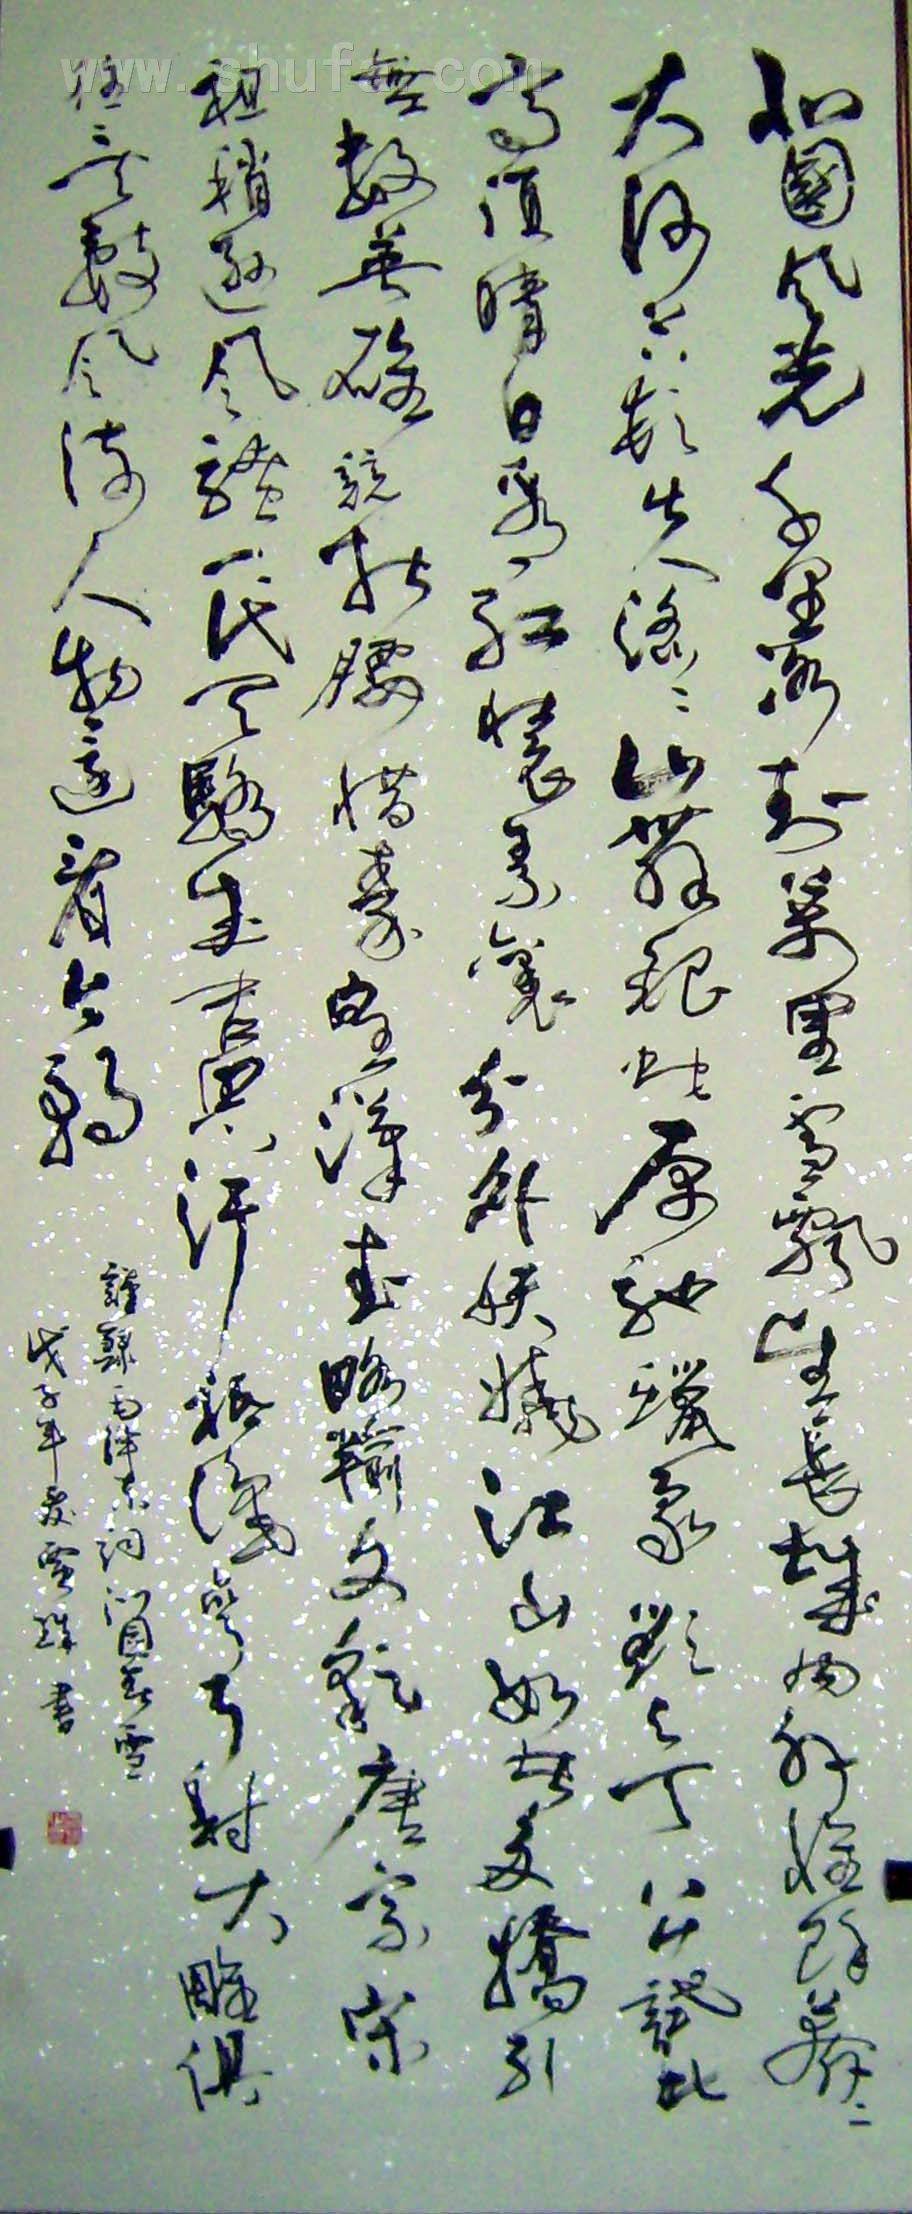 www.shufa.com
北國风光千里冰封萬里雪飘望長城内外惟餘莽〻
大河上下頓失滔〻山舞銀蛇原馳蠟象欲与天公試比
高須晴日看紅裝素裹分外妖嬈江山如此多嬌引
無數英雄競折腰惜秦皇漢武略輸文彩唐宗宋
祖稍遜风騷一代天驕成吉思汗只識彎弓射大雕俱
往〻矣數风流人物還看今朝
謹録毛泽东詞沁園春雪
戊子年 書